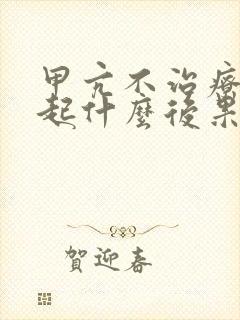 甲亢不治疗
起什麼後果
賀迎春